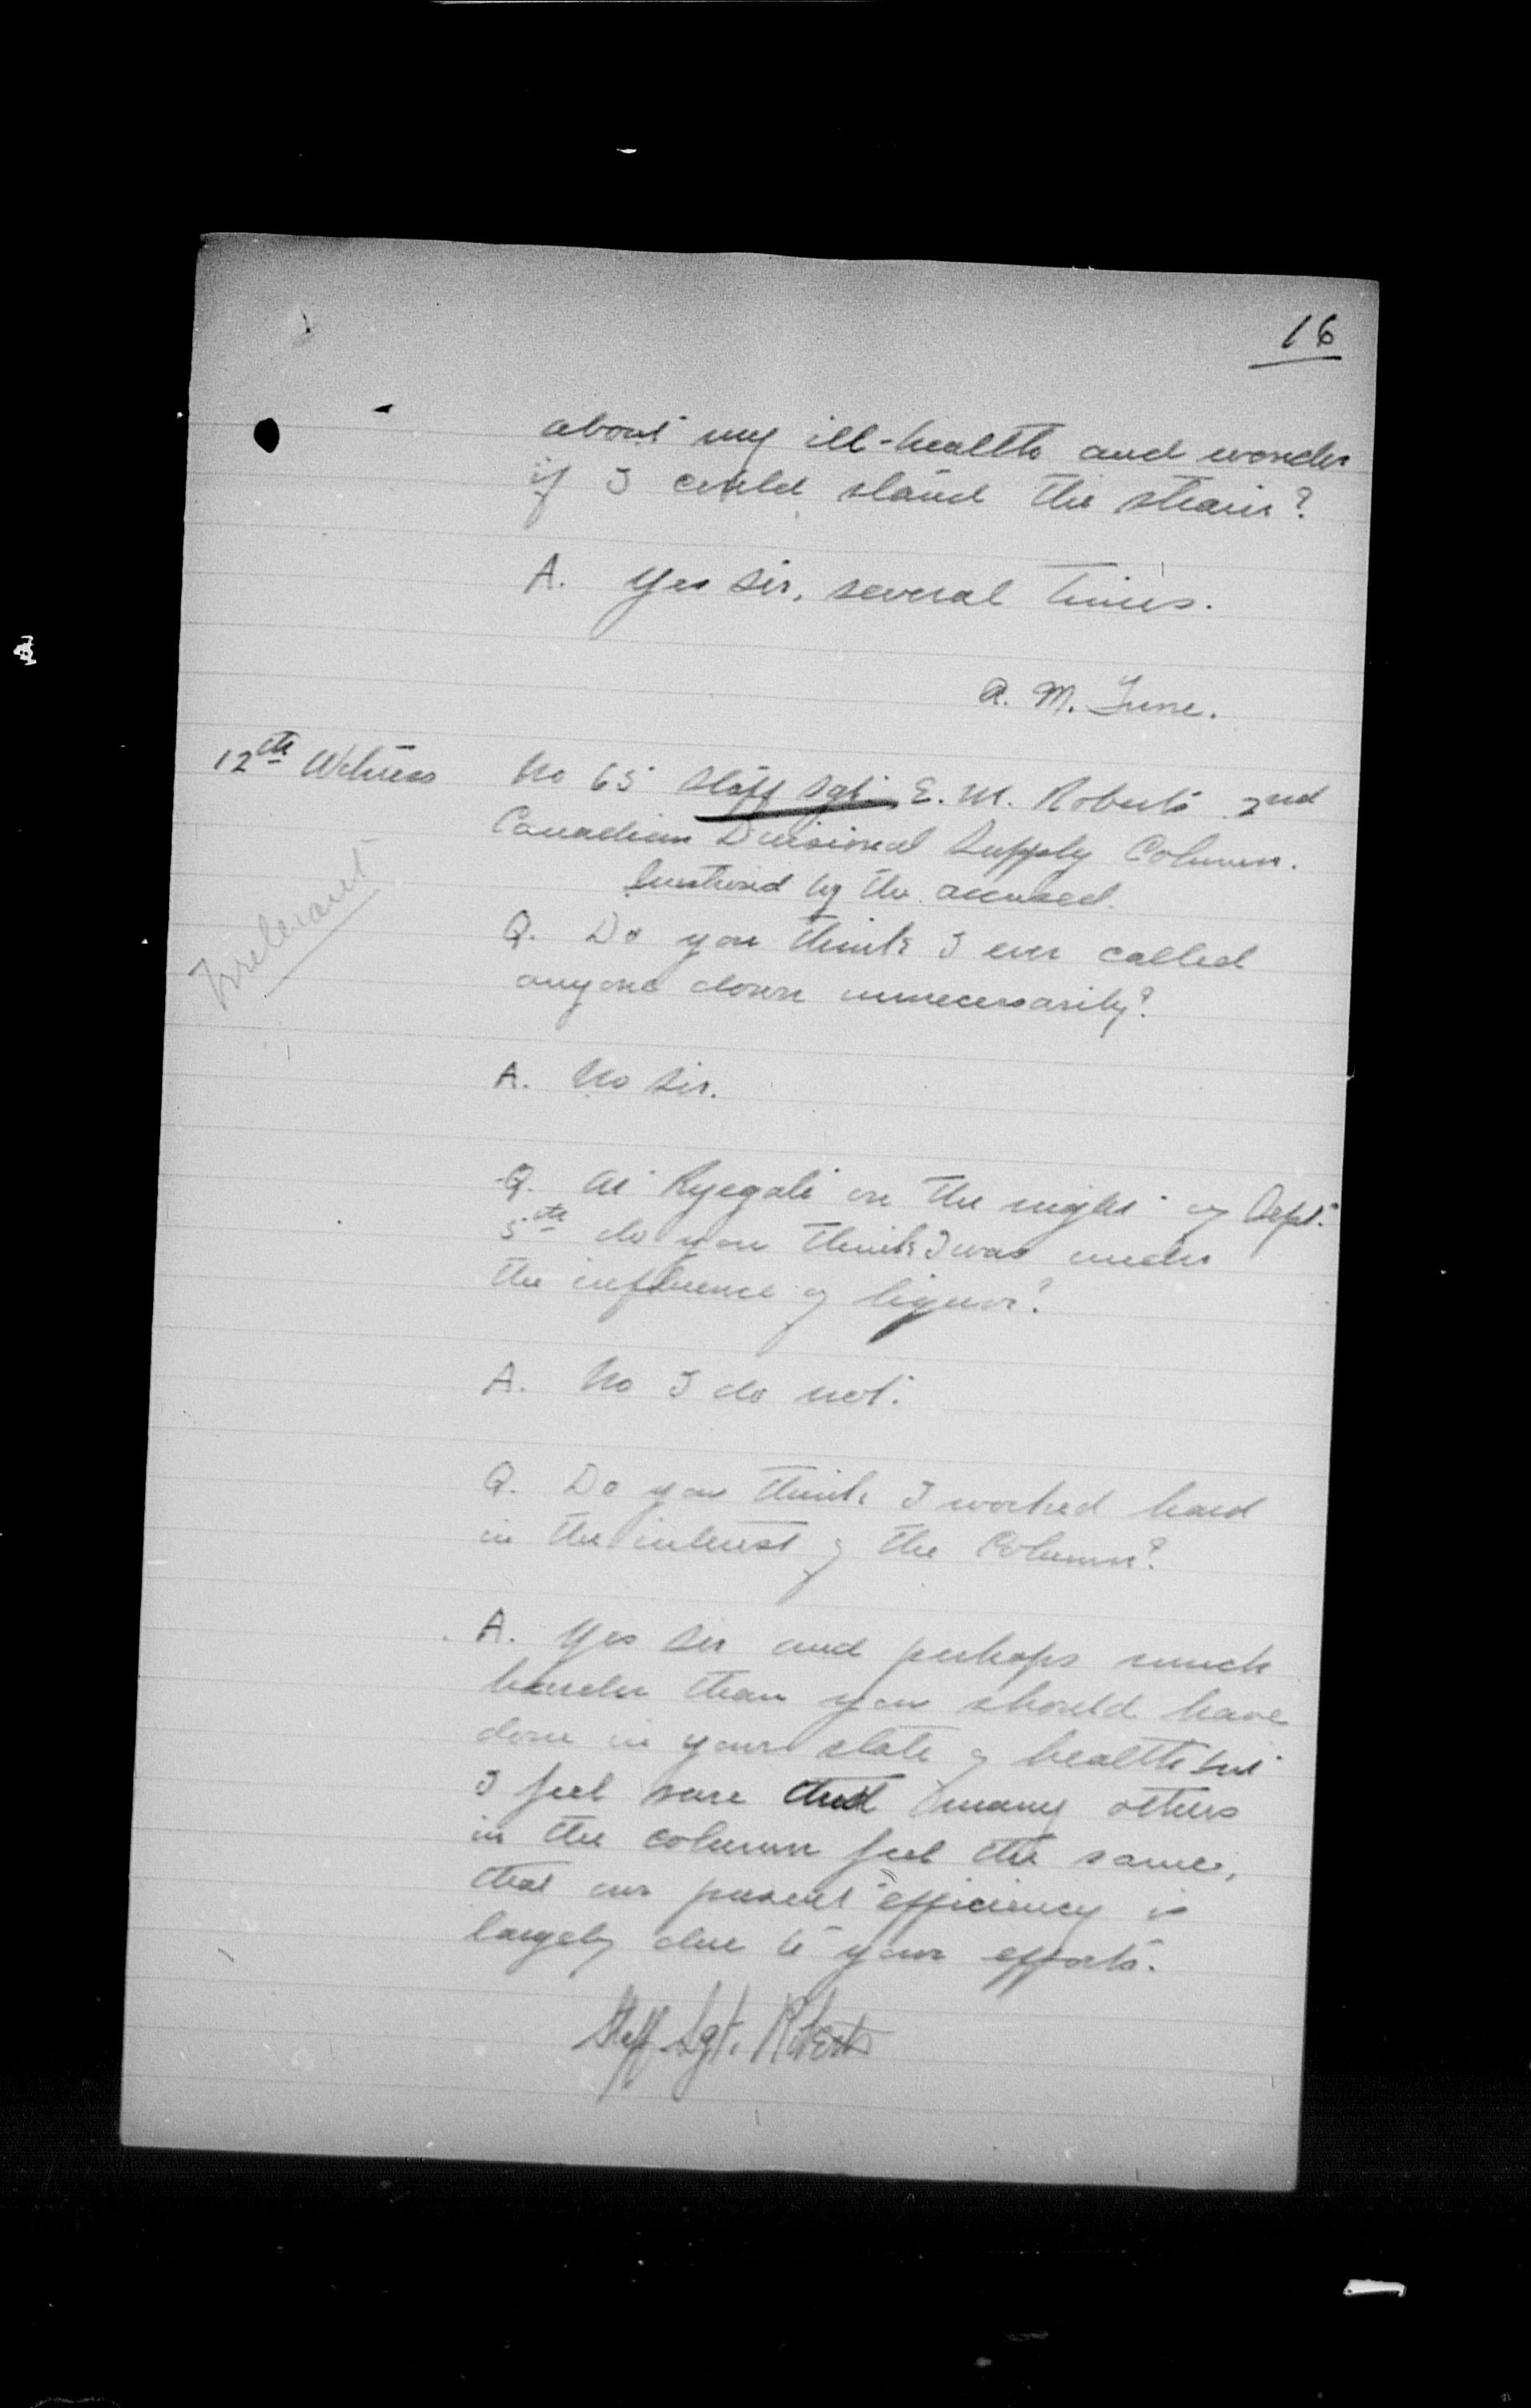 16
about my ill-health and wonder
if I could stand the strain?
A. Yes Sir, several times.
A. M. June.
12th Witness No 65 Staff Sgt. E. M. Roberts 2nd
Canadian Divisional Supply Column.
Questioned by the accused.
Irrelevant
Q. Do you think I ever called
anyone down unnecessarily?
A. No Sir.
Q. At Ryegate on the night of Sept.
5th do you think I was under
the influence of liquor?
A. No I do not.
Q. Do you think I worked hard
in the interest of the Column?
A. Yes Sir and perhaps much
harder than you should have
done in your state of health but
I feel sure that many others
in the column feel the same,
that our present efficiency is
largely due to your efforts.
Staff Sgt. Roberts